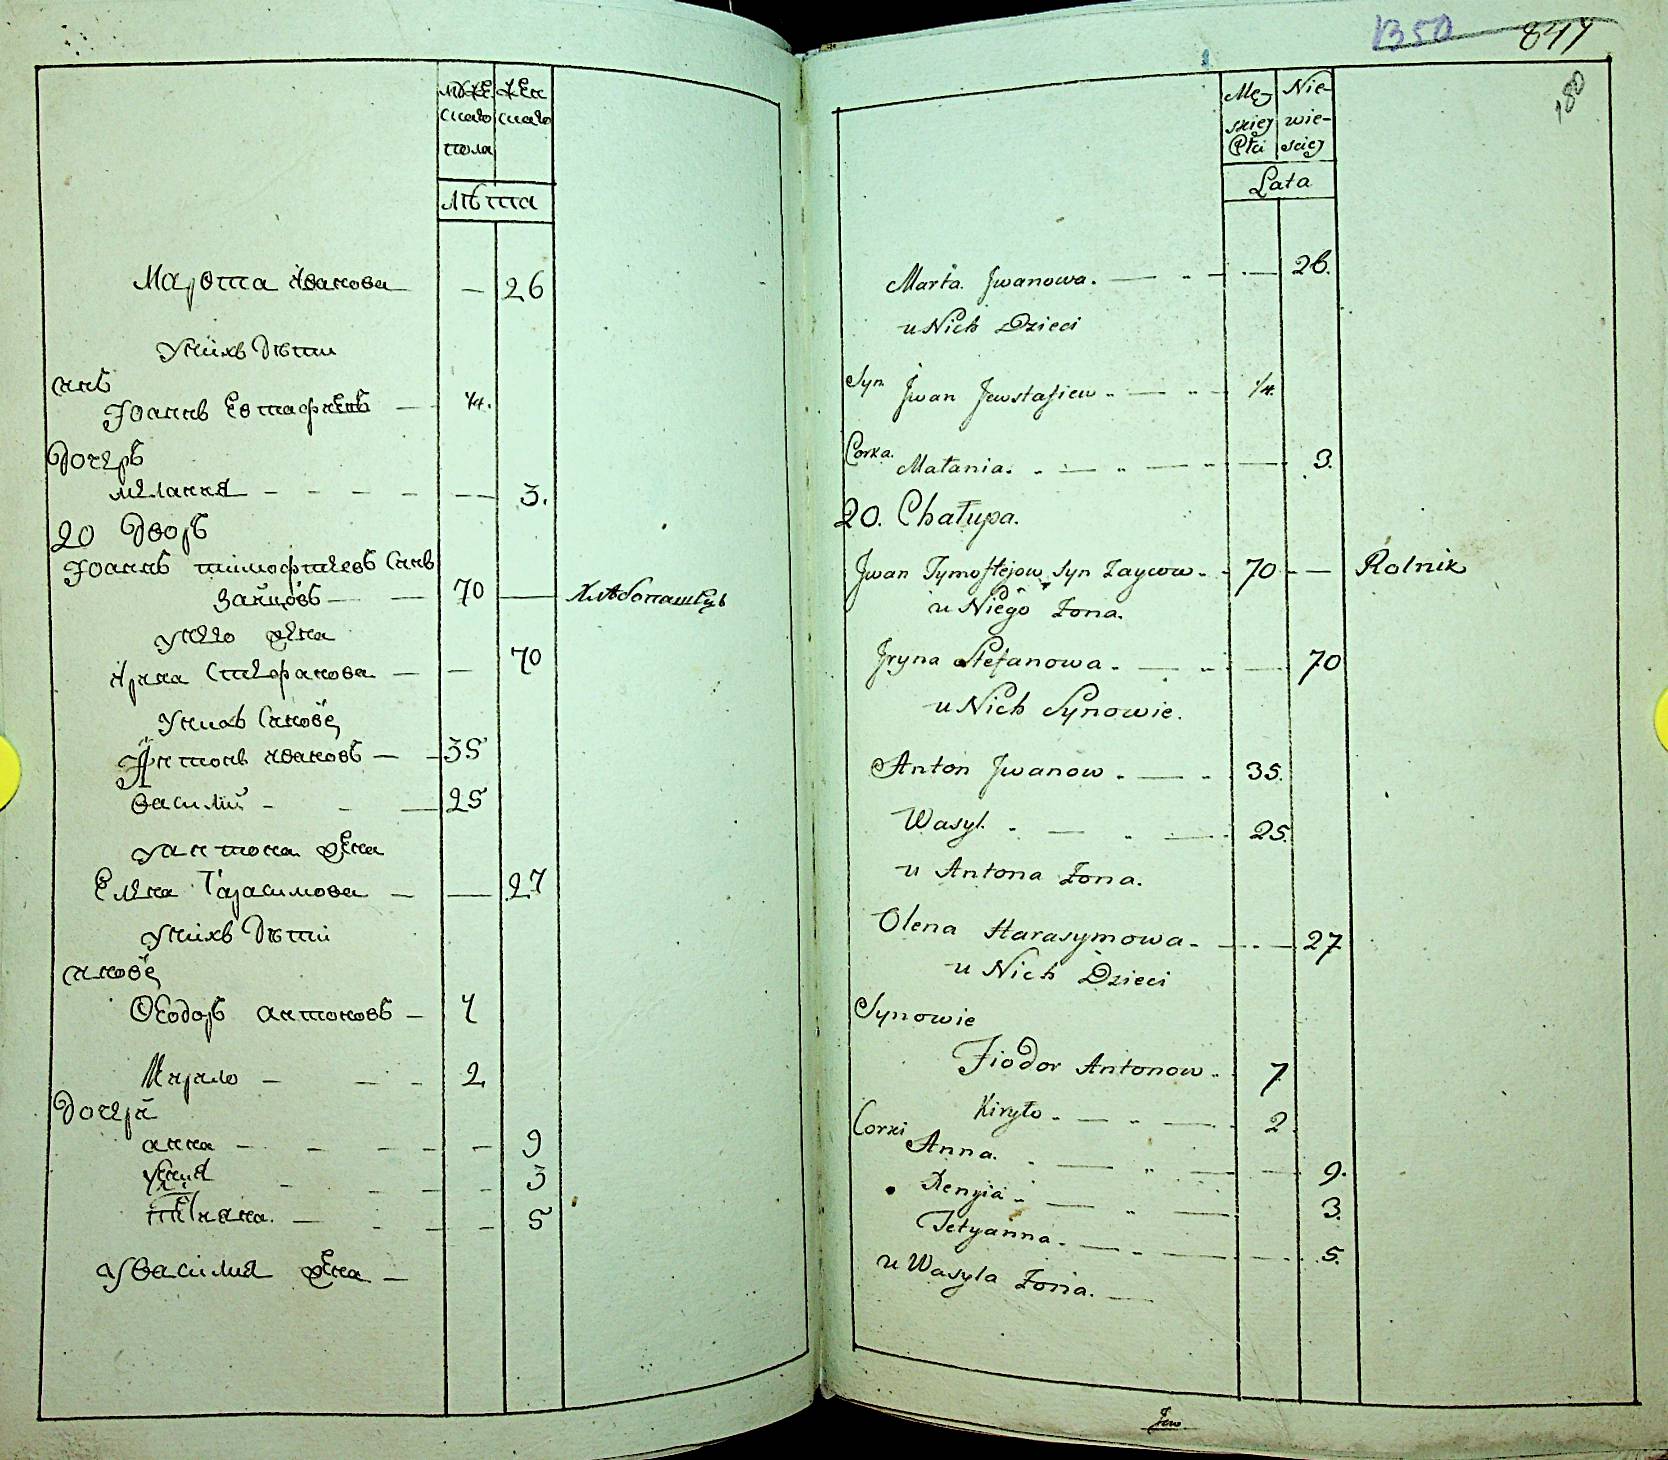 мужескаго пола
женскаго
лѣта
Марѳта Иванова — — 26
У нихъ дѣти
синъ
Іоаннъ Евтафіевъ — 1/4.
дочерь
мелания — — — — — — 3.
20 Дворъ
Іоаннъ тимофѣевъ синъ
Зайцовъ — — 70 — Хлѣбопашецъ
у него жена
Ирина Стефанова — — 70
У нихъ синовѣ
Антонъ ивановъ — — 35
василий — — — 25
у антона жена
Елена Гарасимова — — 27
У нихъ дѣти
синовѣ
Ѳеодоръ антоновъ — 7
Кирило — — — 2
дочери
анна — — — — — 9
3
5
у василия жена —
1350 847
180
Męzskiej Płci
Niewiesciej
Lata
Marta Jwanowa. — — — 26.
u Nich Dzieci
Syn Jwan Jewstafiew. — — 1/4.
Corka. Małania. — — — — 3.
20. Chałupa.
Jwan Tymoftejow Syn Zaycow. — 70 — — Rolnik
u Niego Żona.
Jryna Stefanowa. — — — 70
u Nich Synowie.
Anton Jwanow. — — 35.
Wasyl. — — — 25.
u Antona Żona.
Olena Harasymowa. — — — 27
u Nich Dzieci
Synowie
Fiodor Antonow. — 7
Kiryło. — — — 2.
Corki Anna. — — — — 9.
Xenyia. — — — 3.
Tetyanna. — — — — 5.
u Wasyla Żona. —
Jew